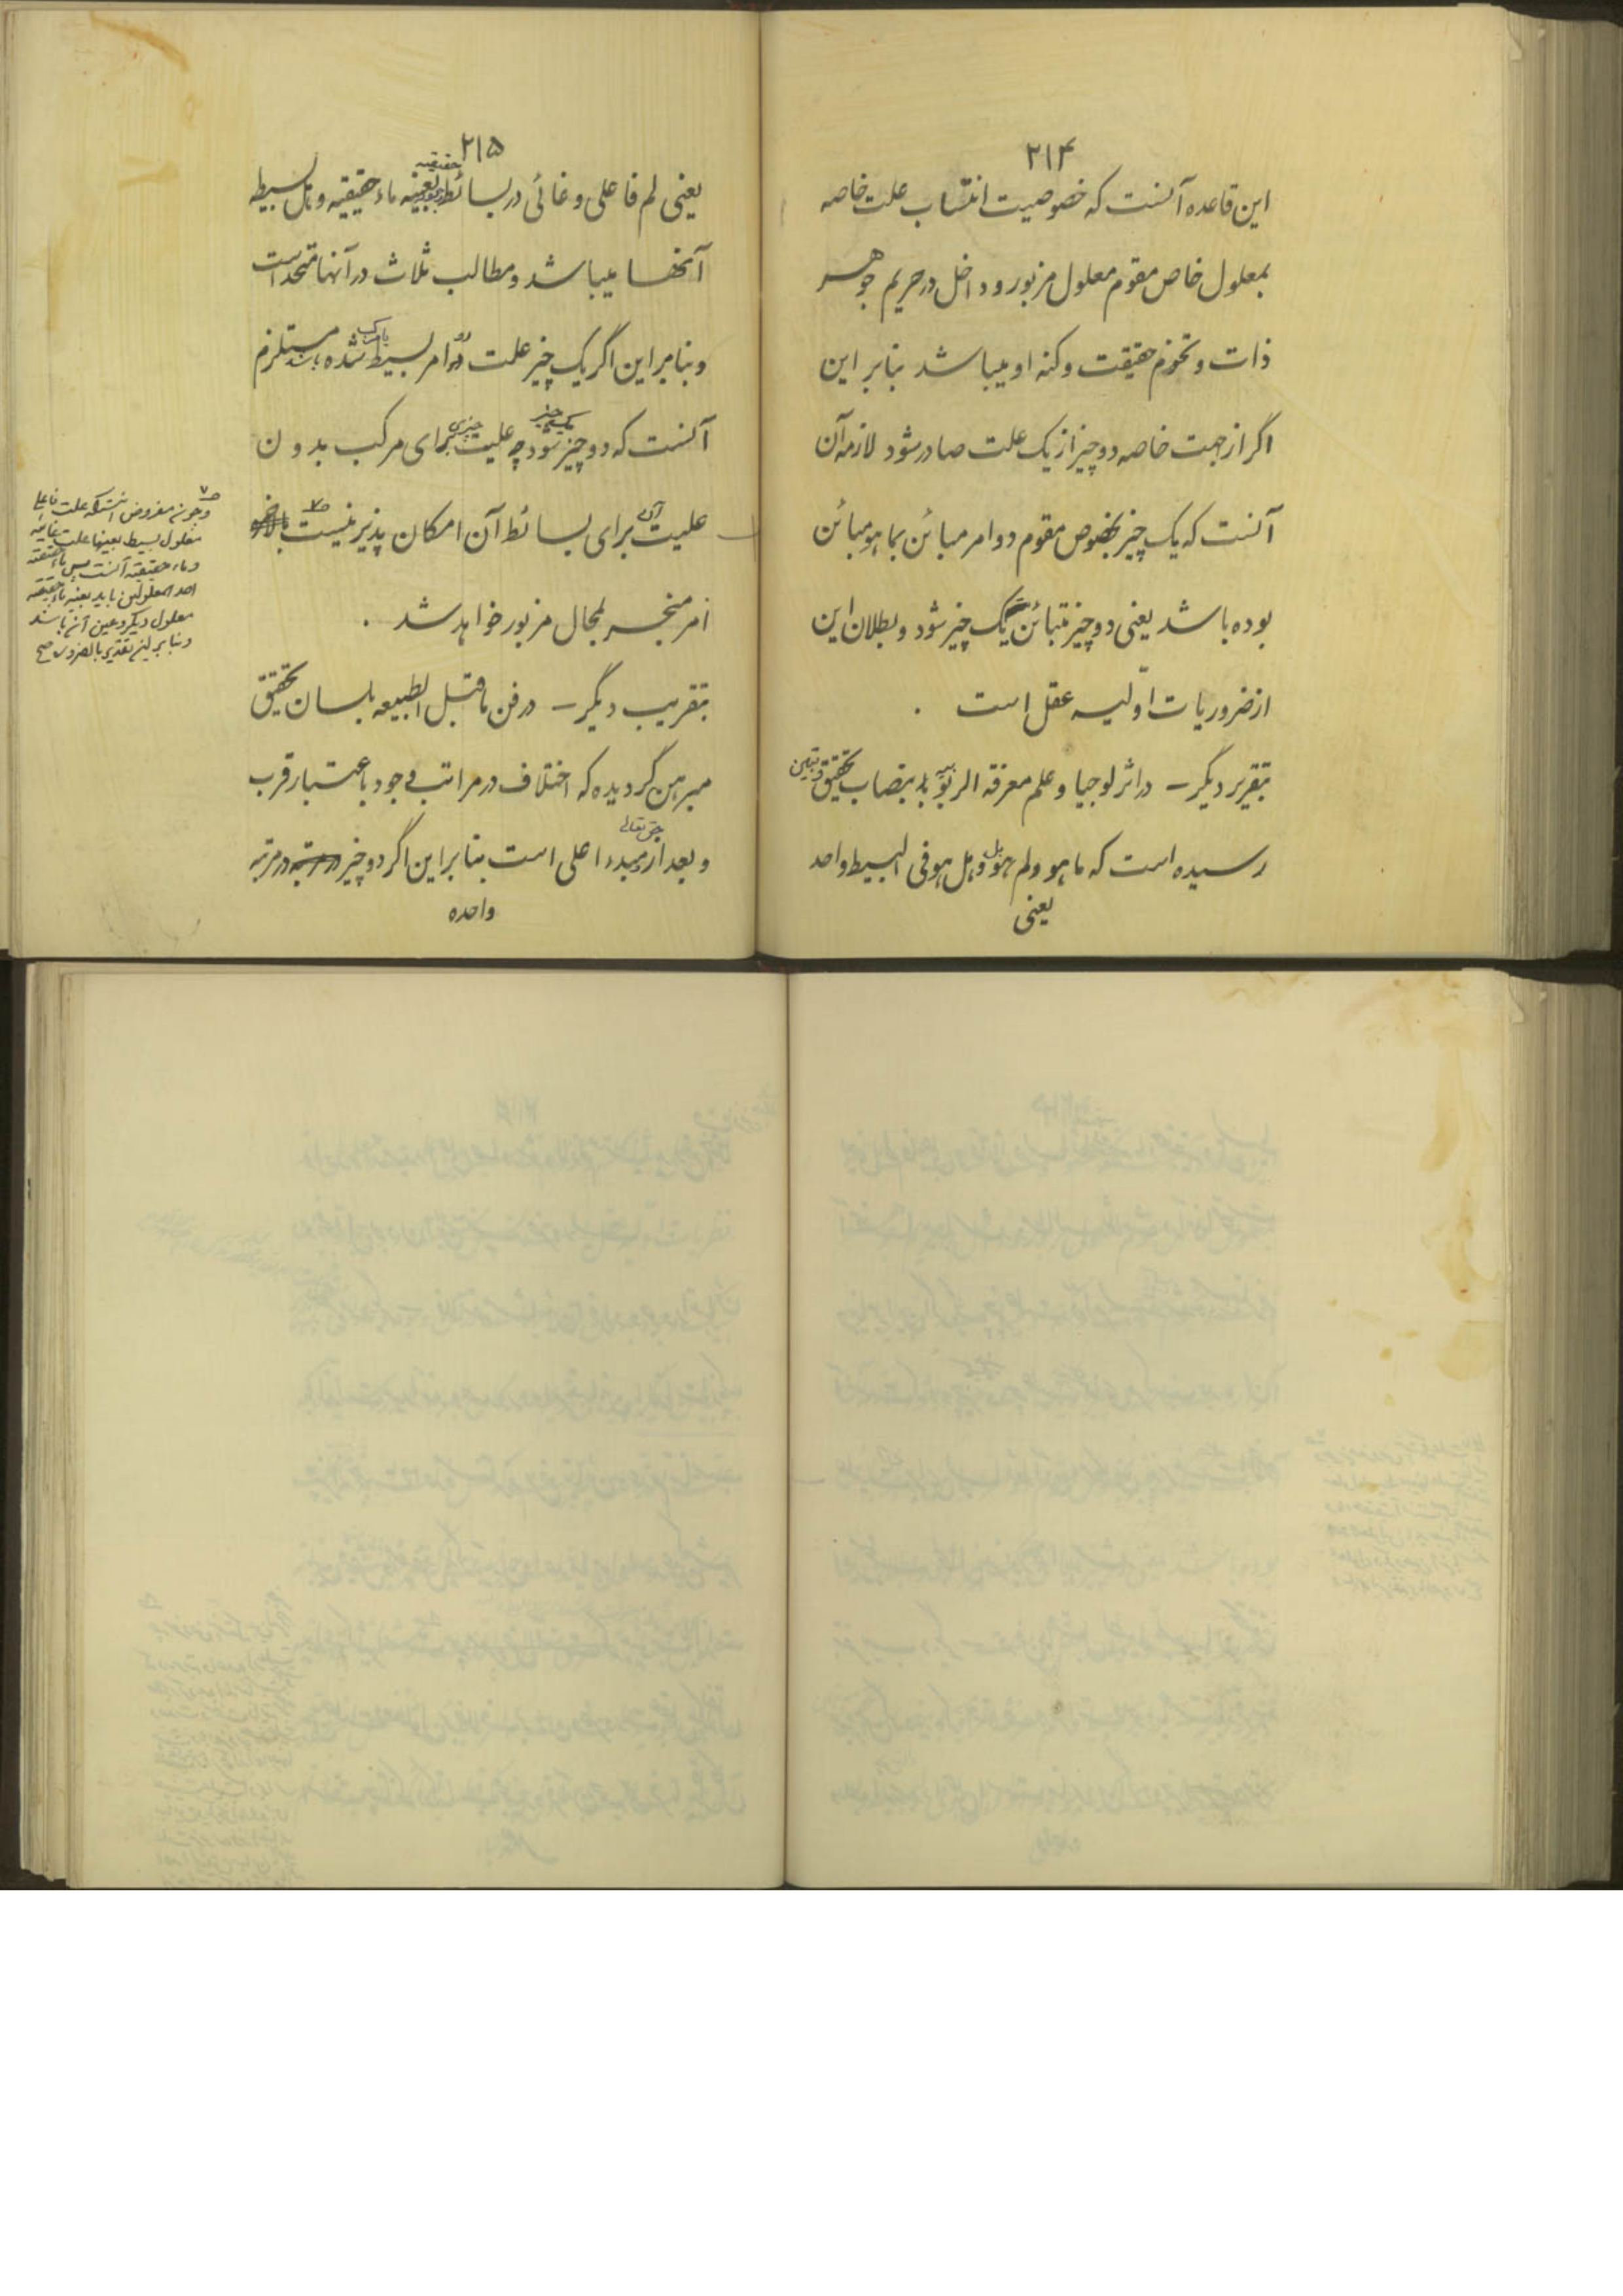 ۲۱۴
این قاعده آنست که خصوصیت انتساب علت خاصه
بمعلول خاص مقوم معلول مزبور و داخل در حریم جوهر
ذات و تخوم حقیقت و کنه او میباشد بنابر این
اگر از جهت خاصه دو چیز از یک علت صادر شود لازمه آن
آنست که یک چیز بخصوص مقوم دو امر مبائن بما هو مبائن
بوده باشد یعنی دو چیز متبائن یک چیز شود و بطلان این
از ضروریات اوّلیه عقل است .
بتقریر دیگر – در اثرلوجیا و علم معرفة الربوبیه بنصاب تحقیق و تبیین
رسیده است که ما هو و لم هو و هل هو فی البسیط واحد
یعنی
۲۱۵
یعنی لم فاعلی و غائی در بسائط حقیقیه بعینه ماء حقیقیه و هل بسیطه
آنها میباشد و مطالب ثلاث در آنها متحد است
و بنابر این اگر یک چیز علت دو امر بسیط یا مرکب شده باشد مستلزم
آنست که دو چیز یک چیز شود چه علیت چیزی برای مرکب بدون
علیت آن برای بسائط آن امکان پذیر نیست
امر منجر بمحال مزبور خواهد شد .
بتقریب دیگر – در فن ما قبل الطبیعه بلسان تحقیق
مبرهن گردیده که اختلاف در مراتب وجود باعتبار قرب
و بعد از مبدء اعلی حق تعالی است بنابر این اگر دو چیز در مرتبه
واحده
و چون مفروض اینستکه علت فاعلی
معلول بسیط بعینها علت غائیه
و ماء حقیقیه آنست پس ماء حقیقیه
احد المعلولین باید بعینه ماء حقیقیه
معلول دیگر و عین آن باشد
و بنابر این تقدیر بالضروره صح